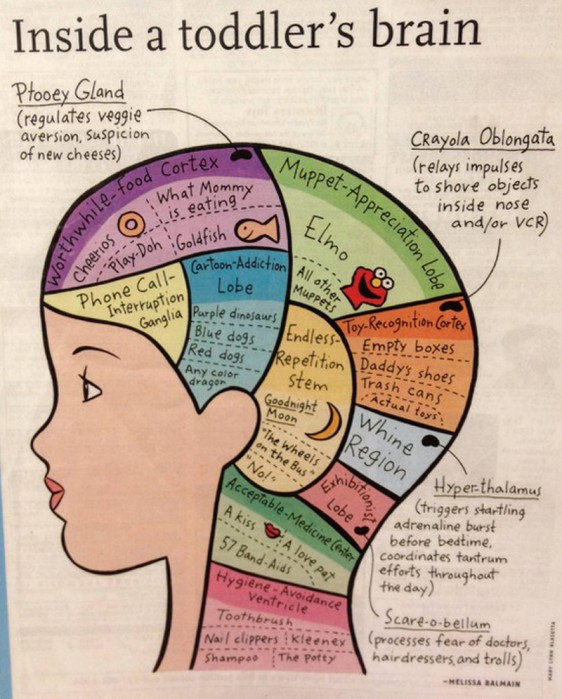 Inside a toddler's brain
Ptooey Gland
(regulates veggie
aversion, suspicion
of new cheeses)
Crayola Oblongata
(relays impulses
to shove objects
inside nose
and/or VCR)
Worthwhile-food Cortex
What Mommy
is eating
Cheerios
Play-Doh
Goldfish
Muppet-Appreciation Lobe
Elmo
All other
Muppets
Phone Call-
Interruption
Ganglia
Cartoon-Addiction
Lobe
Purple dinosaurs
Blue dogs
Red dogs
Any color
dragon
Endless-
Repetition
Stem
Goodnight
Moon
"The Wheels
on the Bus"
"No!"
Toy-Recognition Cortex
Empty boxes
Daddy's shoes
Trash cans
Actual toys
Whine
Region
Exhibitionist
Lobe
Hyper-thalamus
(triggers startling
adrenaline burst
before bedtime,
coordinates tantrum
efforts throughout
the day)
Acceptable-Medicine Center
A kiss
A love pat
57 Band-Aids
Hygiene-Avoidance
Ventricle
Toothbrush
Nail clippers
Kleenex
Shampoo
The potty
Scare-o-bellum
(processes fear of doctors,
hairdressers, and trolls)
–MELISSA BALMAIN